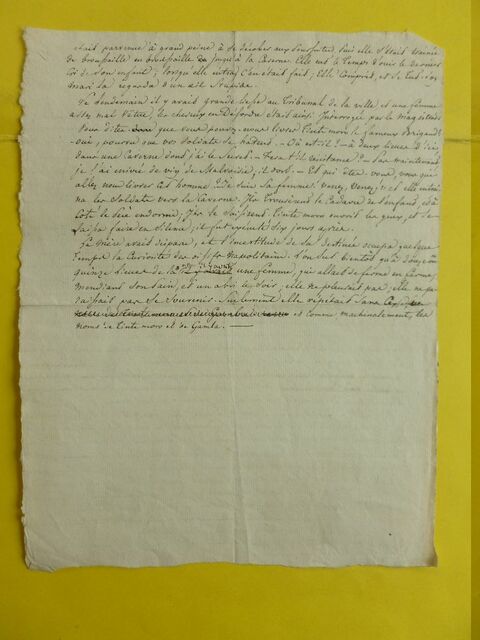 était parvenue à grand peine à se dérober aux poursuites, puis elle s'était traînée
de broussaille en broussaille jusqu'à la Caverne. Elle eut le temps d'ouïr le dernier
cri de son enfant; lorsqu'elle entra, c'en était fait; Elle comprit, et se tut. Son
mari la regarda d'un œil stupide.
Le lendemain il y avait grande au Tribunal de la ville et une femme
assez mal vêtue, les cheveux en désordre était Interrogée par le magistrat
vous dites que vous pouvez nous livrer le fameux Brigand
- oui, pourvu que vos soldats se hâtent. - Où est-il? - à deux lieues d'ici
dans une Caverne dont j'ai le secret. - - Pas maintenant
je l'ai enivré de vin de Malvoisie, il dort. - Et qui êtes-vous, vous qui
allez nous livrer cet homme? Je suis sa femme! Venez, Venez; et elle
les soldats vers la Caverne. Ils trouvèrent le Cadavre de l'enfant, et à
côté le père endormi, Ils le saisirent. ouvrit les yeux, et
se laissa faire en silence; il fut exécuté six jours après.
La Mère avait disparu, et l'incertitude de sa destinée occupa quelque
temps la Curiosité des Napolitains. L'on sut bientôt qu'à
quinze lieues de là une femme, qui allait de ferme en ferme,
Mendiant son pain, et un abri le soir, elle ne pleurait pas, elle ne
paraissait pas se souvenir. Seulement elle répétait sans
et comme machinalement, les
noms de et de